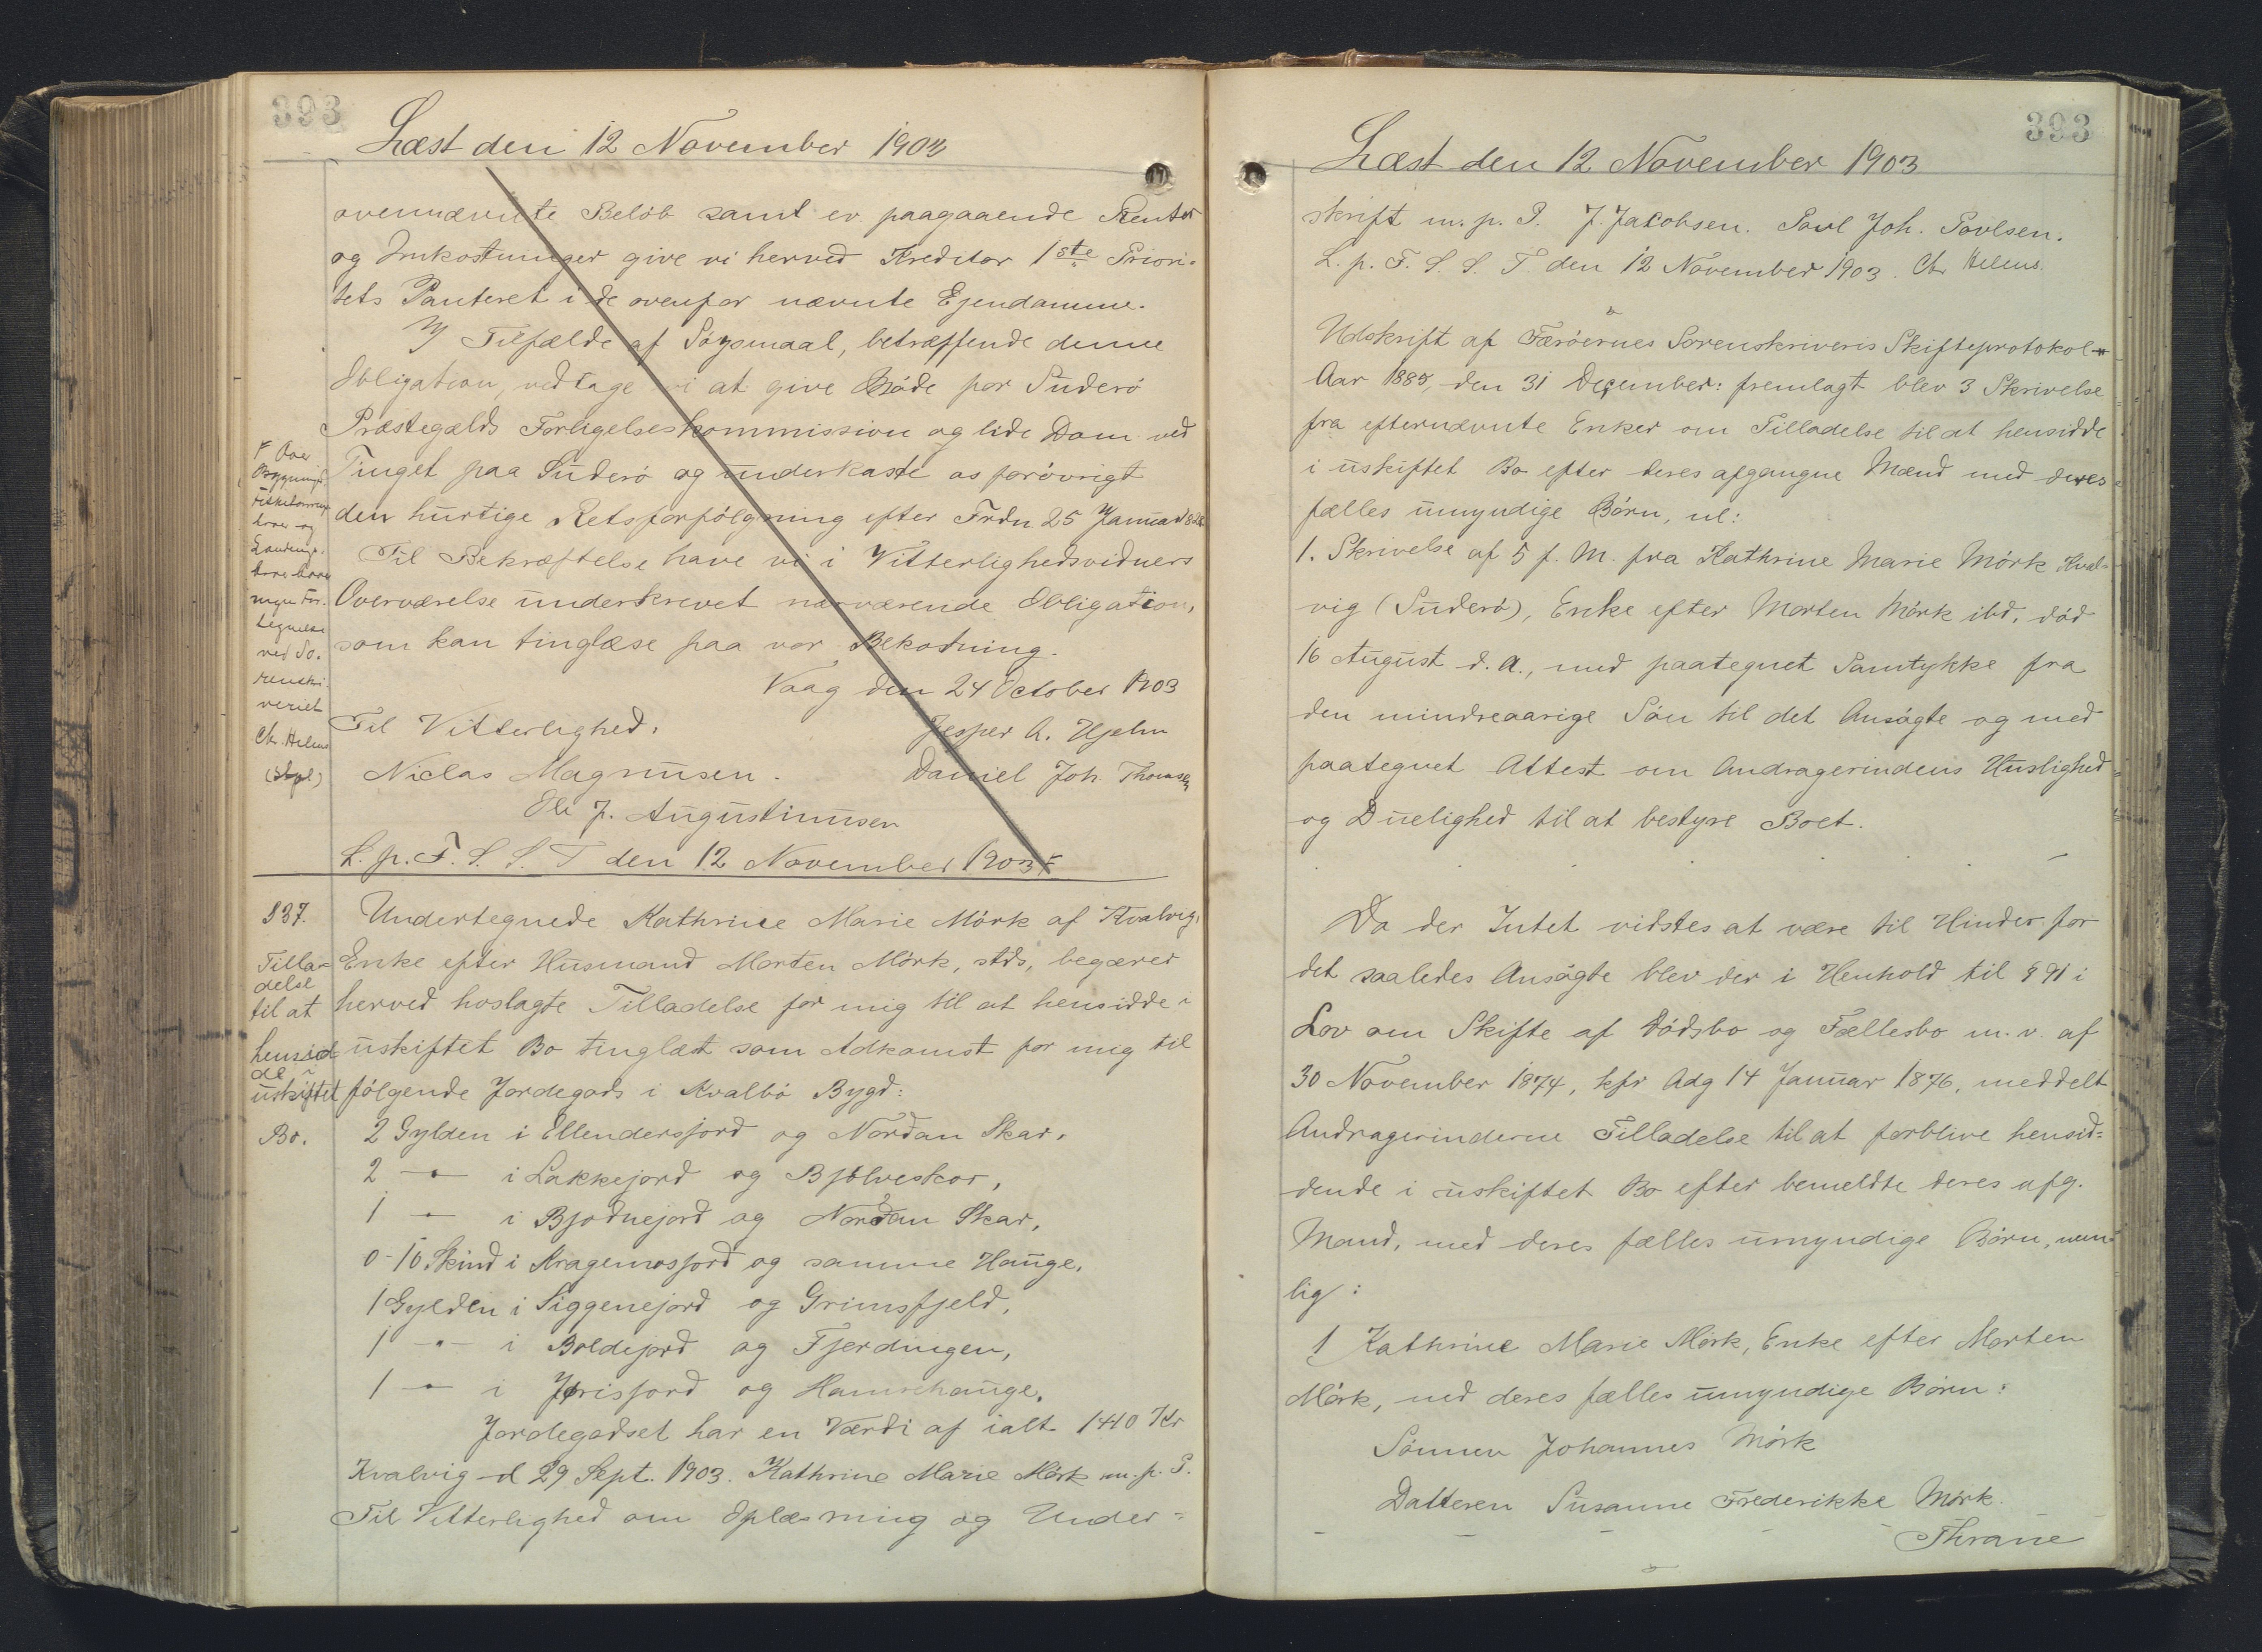 393
Læst den 12 November 1903
ovennævnte Beløb samt ev. paagaaende Renter
og Omkostninger give vi herved Kreditor 1ste Priori-
tets Panteret i de ovenfor nævnte Ejendomme.
I Tilfælde af Søgsmaal, betræffende denne
Obligation, vedtage vi at give Møde for Suderø
Præstegælds Forligelseskommission og lide Dom ved
Tinget paa Suderø og underkaste os forøvrigt
den hurtige Retsforfølgning efter Frdn 25 Januar 1828
Til Bekræftelse have vi i Vitterlighedsvidners
Overværelse underskrevet nærværende Obligation,
som kan tinglæse paa vor Bekostning.
Vaag den 24 October 1903
Til Vitterlighed: Jesper A. Hjelm
Niclas Magnusen. Daniel Joh. Thomsen
Ole J. Augustinusen
L. p. F. S. S. T den 12 November 1903 F
F Over
Bygnings
havehave
ved So-
renskri-
veriet
Chr. Helms
337.
Tilla-
delse
til at
hensid
de i
uskiftet
Bo.
Undertegnede Kathrine Marie Mørk af Kvalvig,
Enke efter Husmand Morten Mørk, stds, begærer
herved hoslagte Tilladelse for mig til at hensidde i
uskiftet Bo tinglæst som Adkomst for mig til
følgende Jordegods i Kvalbø Bygd:
2 Gylden i Ellendersjord og Nordan Skar,
2 — " — i Lakkejord og Bjølveskor,
1 — " — i Bjodnejord og Nordan Skar,
0-10 Skind i Kragemosjord og samme Hauge,
1 Gylden i Siggenejord og Grimsfjeld,
1 — " — i Boldejord og Fjerdingen,
1 — " — i Jørisjord og Hamrehauge.
Jordegodset har en Værdi af ialt 1410 Kr
Kvalvig d 29 Sept. 1903. Kathrine Marie Mørk m. p. P.
Til Vitterlighed om Oplæsning og Under=
393
Læst den 12 November 1903
skrift m. p. P. J. Jacobsen. Poul Joh. Poulsen.
L. p. F. S. S. T. den 12 November 1903. Chr Helms
Udskrift af Færøernes Sorenskriveris Skifteprotokol
Aar 1885, den 31 December: fremlagt blev 3 Skrivelse
fra efternævnte Enker om Tilladelse til at hensidde
i uskiftet Bo efter deres afgangne Mænd med deres
fælles umyndige Børn, nl:
1. Skrivelse af 5 f. M. fra Kathrine Marie Mørk Kval-
vig (Suderø), Enke efter Morten Mørk ibd, død
16 August d. A., med paategnet Samtykke fra
den mindreaarige Søn til det Ansøgte og med
paategnet Attest om Andragerindens Huslighed
og Duelighed til at bestyre Boet.
Da der Intet vidstes at være til Hinder for
det saaledes Ansøgte blev der i Henhold til § 91 i
Lov om Skifte af Dødsbo og Fællesbo m. v. af
30 November 1874, kfr Adg 14 Januar 1876, meddelt
Andragerinderne Tilladelse til at forblive hensid=
dende i uskiftet Bo efter bemeldte deres afg.
Mand, med deres fælles umyndige Børn, nem-
lig:
1 Kathrine Marie Mørk, Enke efter Morten
Mørk, med deres fælles umyndige Børn:
Sønnen Johannes Mørk
Datteren Susanne Frederikke Mørk.
Thrane